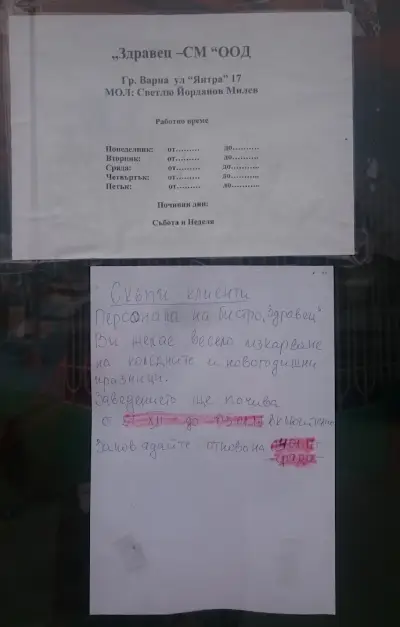 „Здравец –СМ “ООД
Гр. Варна ул “Янтра” 17
МОЛ: Светлю Йорданов Милев
Работно време
Понеделник: от......... до..........
Вторник: от......... до..........
Сряда: от......... до..........
Четвъртък: от......... до..........
Петък: от......... до..........
Почивни дни:
Събота и Неделя
Скъпи клиенти
Персонала на бистро „Здравец“
Ви желае весело изкарване
на коледните и новогодишни
празници.
Заведението ще почива
с XII до
Заповядайте отново на